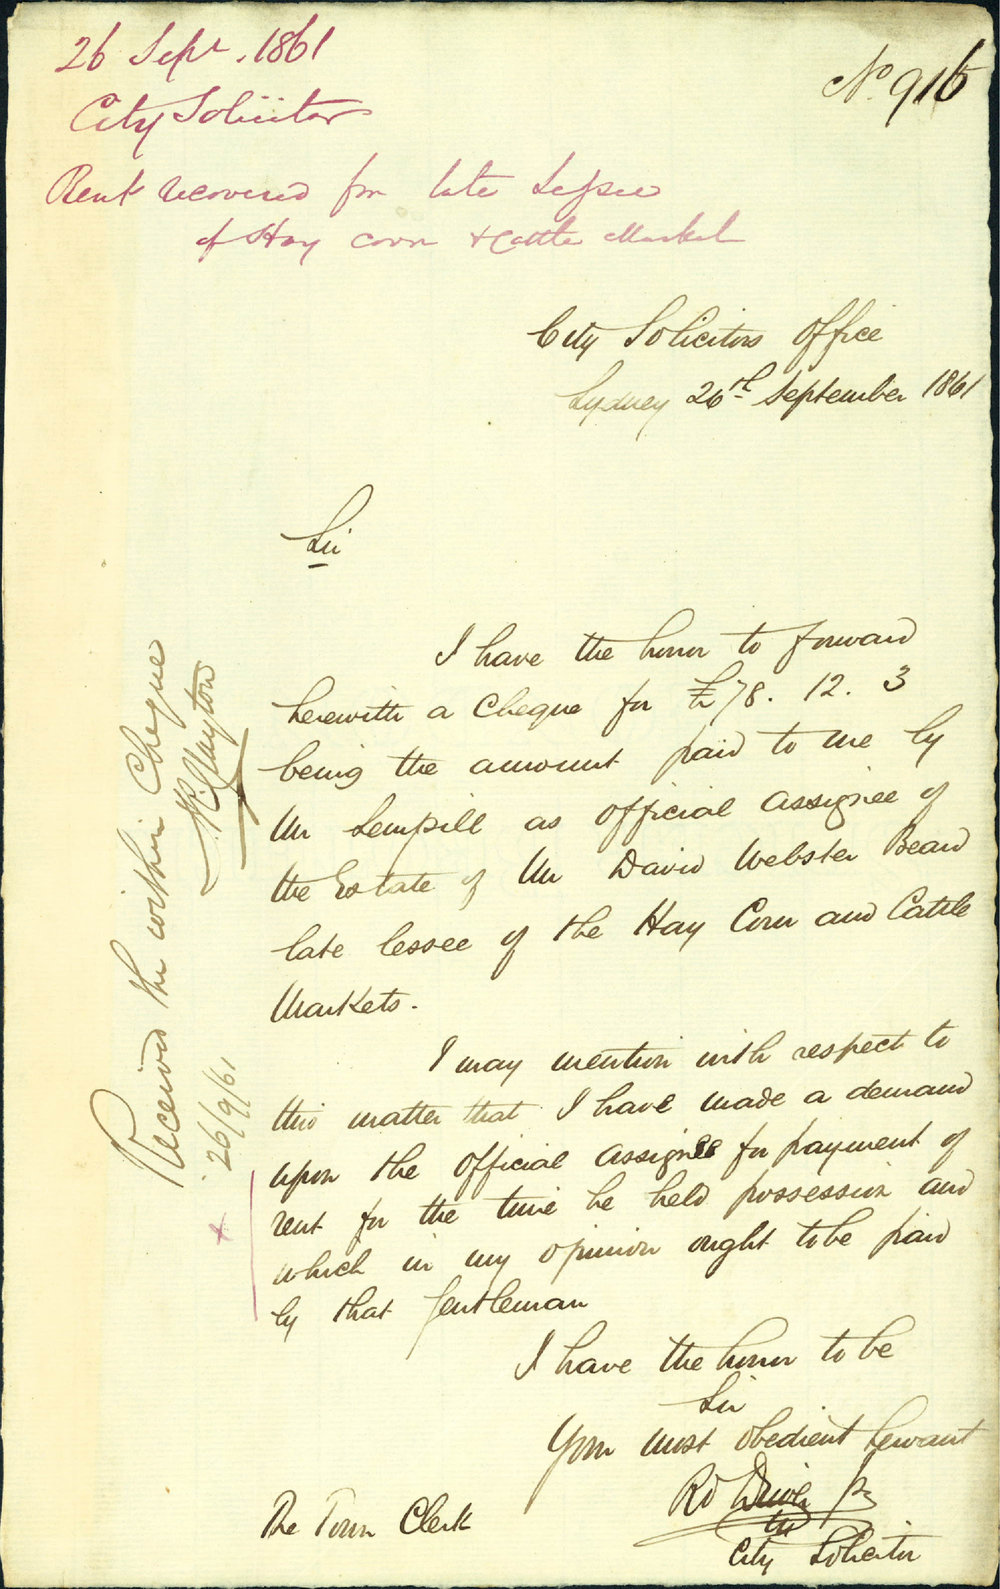 26 Sept. 1861
City Solicitor
Rent recovered from late Lessee
of Hay Corn & Cattle Market
No. 916
City Solicitors Office
Sydney 26th September 1861
Sir
I have the honor to forward
herewith a Cheque for £78. 12. 3
being the amount paid to me by
Mr Sempill as Official Assignee of
the Estate of Mr David Webster Beard
late lessee of the Hay Corn and Cattle
Markets.
I may mention with respect to
this matter that I have made a demand
upon the Official Assignee for payment of
rent for the time he held possession and
which in my opinion ought to be paid
by that Gentleman
I have the honor to be
Sir
Your most obedient Servant
Rd Driver Jr
City Solicitor
The Town Clerk
Received the within Cheque
Clayton
26/9/61
x